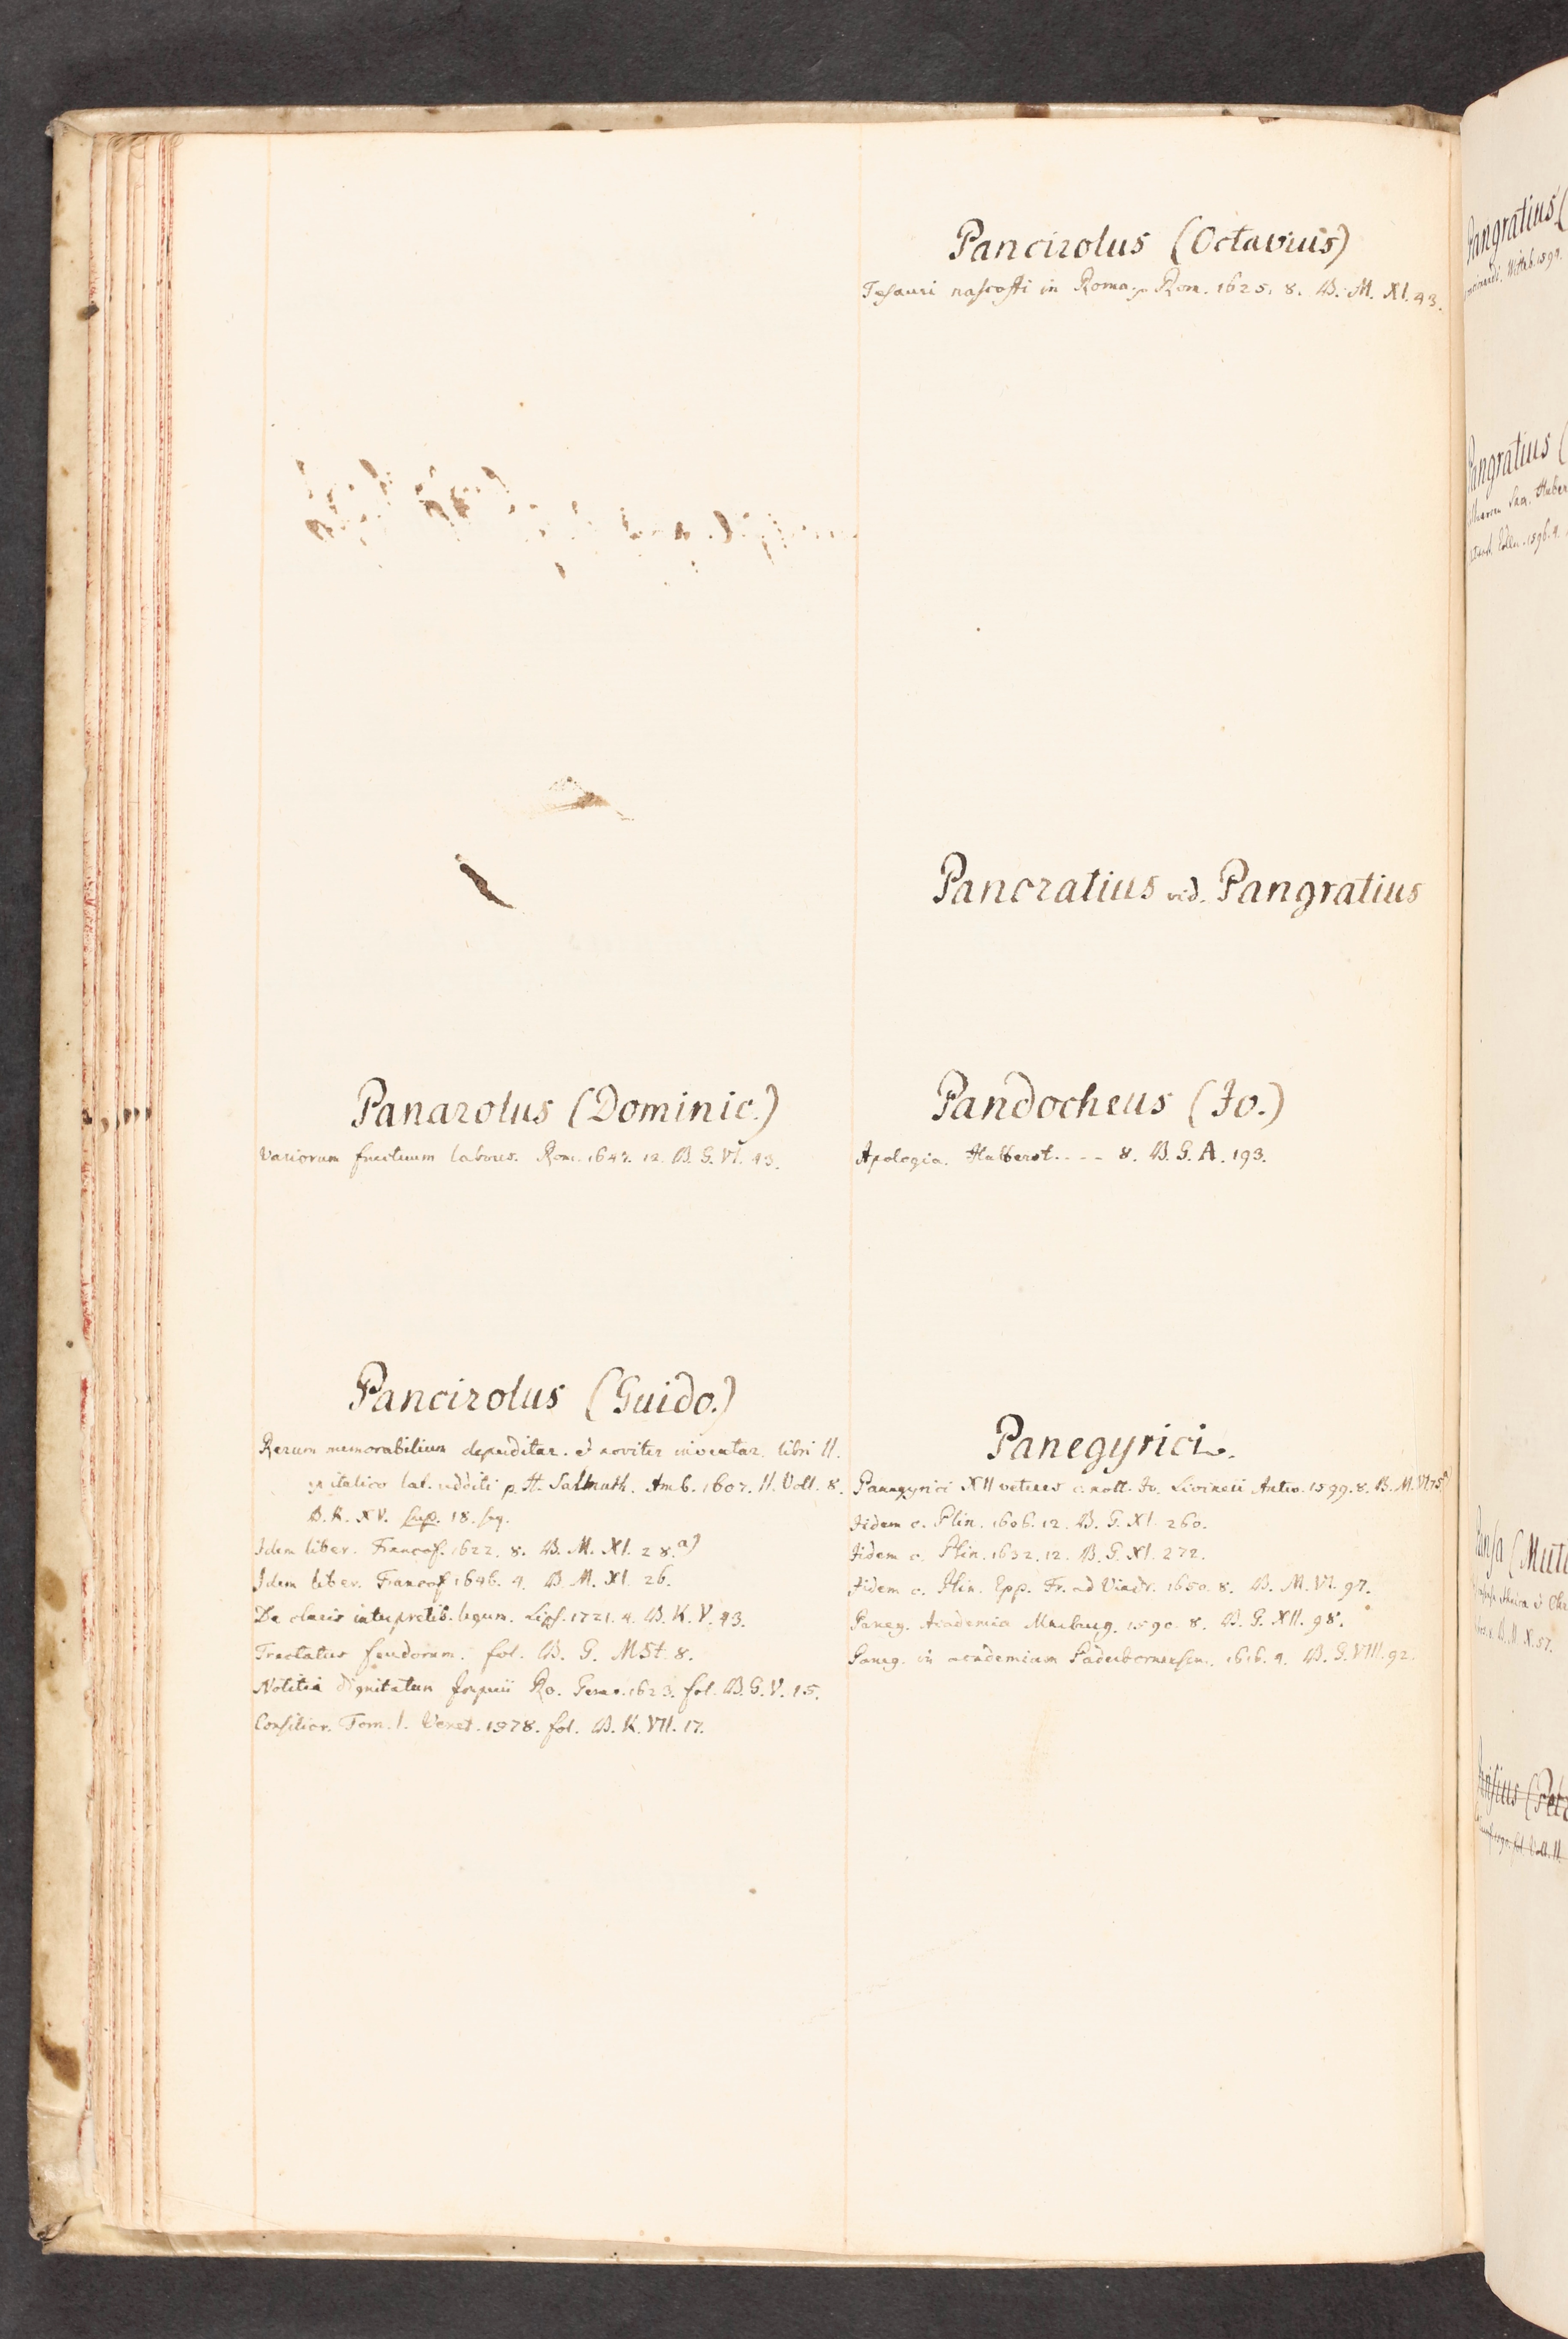 Panarolus (Dominic.)
Variorum fructuum labores. Rom. 1647. 12. B. G. VI. 43.
Pancirolus (Guido.)
Rerum memorabilium deperditar. & noviter inventar. libri II.
ex italico lat. redditi p. H. Salmuth. Amb. 1607. II. Voll. 8.
B. K. XV. sup. 18. sq.
Idem liber. Francof. 1622. 8. B. M. XI. 28.a)
Idem liber. Francof. 1646. 4. B. M. XI. 26.
De claris interpretib. legum. Lips. 1721. 4. B. K. V. 43.
Tractatus feudorum. fol. B. G. MSt. 8.
Notitia dignitatum Imperii Ro. Genev. 1623. fol. B. G. V. 15.
Consilior. Tom. I. Venet. 1578. fol. B. K. VII. 17.
Pancirolus (Octavius)
Tesauri nascosti in Roma. Rom. 1625. 8. B. M. XI. 43.
Pancratius vid. Pangratius
Pandocheus (Jo.)
Apologia. Halberst. - - - 8. B. G. A. 193.
Panegyrici.
Panegyrici XII veteres c. nott. Jo. Livineii Antw. 1599. 8. B. M. VI. 75.
Iidem c. Plin. 1606. 12. B. G. XI. 260.
Iidem c. Plin. 1632. 12. B. G. XI. 272.
Iidem c. Plin. Epp. Fr. ad Viadr. 1650. 8. B. M. VI. 97.
Paneg. Academia Marburg. 1590. 8. B. G. XII. 98.
Paneg. in academiam Paderbornensem. 1616. 4. B. G. VIII. 92.
Pangratius (
Pangratius (
Pansa (Muti
B. M. X. 57.